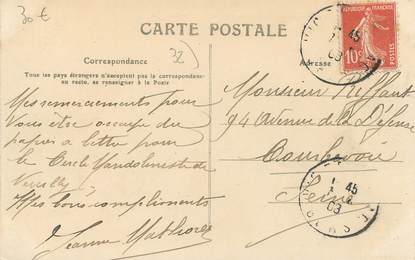 30 €
32
CARTE POSTALE
Correspondance
Tous les pays étrangers n'acceptent pas la correspondance
au recto, se renseigner à la Poste
Adresse
RÉPUBLIQUE FRANÇAISE
10c
POSTES
Mes remerciements pour
vous être occupé du
papier à lettre pour
le Cercle Mandoliniste de
Neuilly
Mes bons compliments
Jeanne
Monsieur
94 Avenue de la Défense
Courbevoie
Seine
45
03